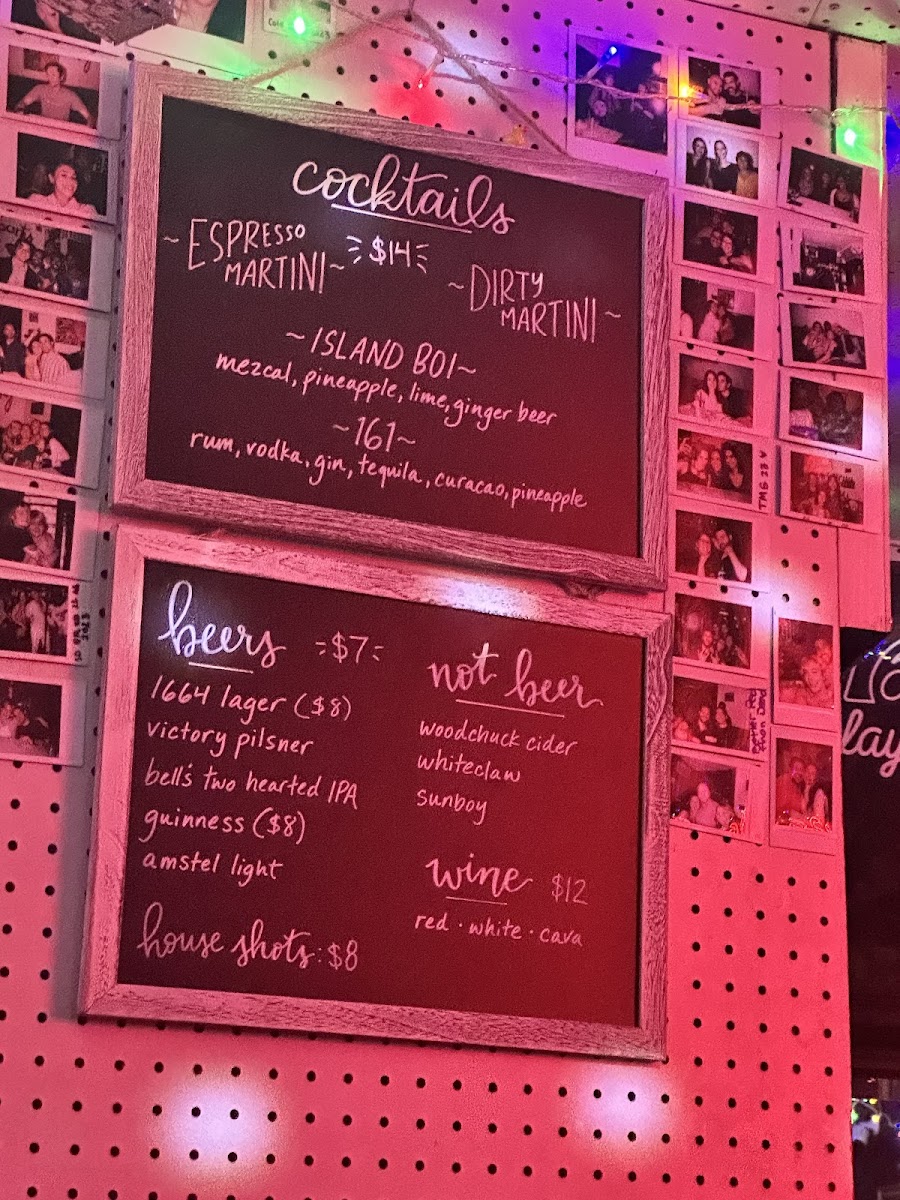 cocktails
~ESPRESSO
MARTINI~
$14
~DIRTY
MARTINI~
~ISLAND BOI~
mezcal, pineapple, lime, ginger beer
~161~
rum, vodka, gin, tequila, curacao, pineapple
beers =$7=
1664 lager ($8)
victory pilsner
bell's two hearted IPA
guinness ($8)
amstel light
house shots: $8
not beer
woodchuck cider
whiteclaw
sunboy
wine $12
red · white · cava